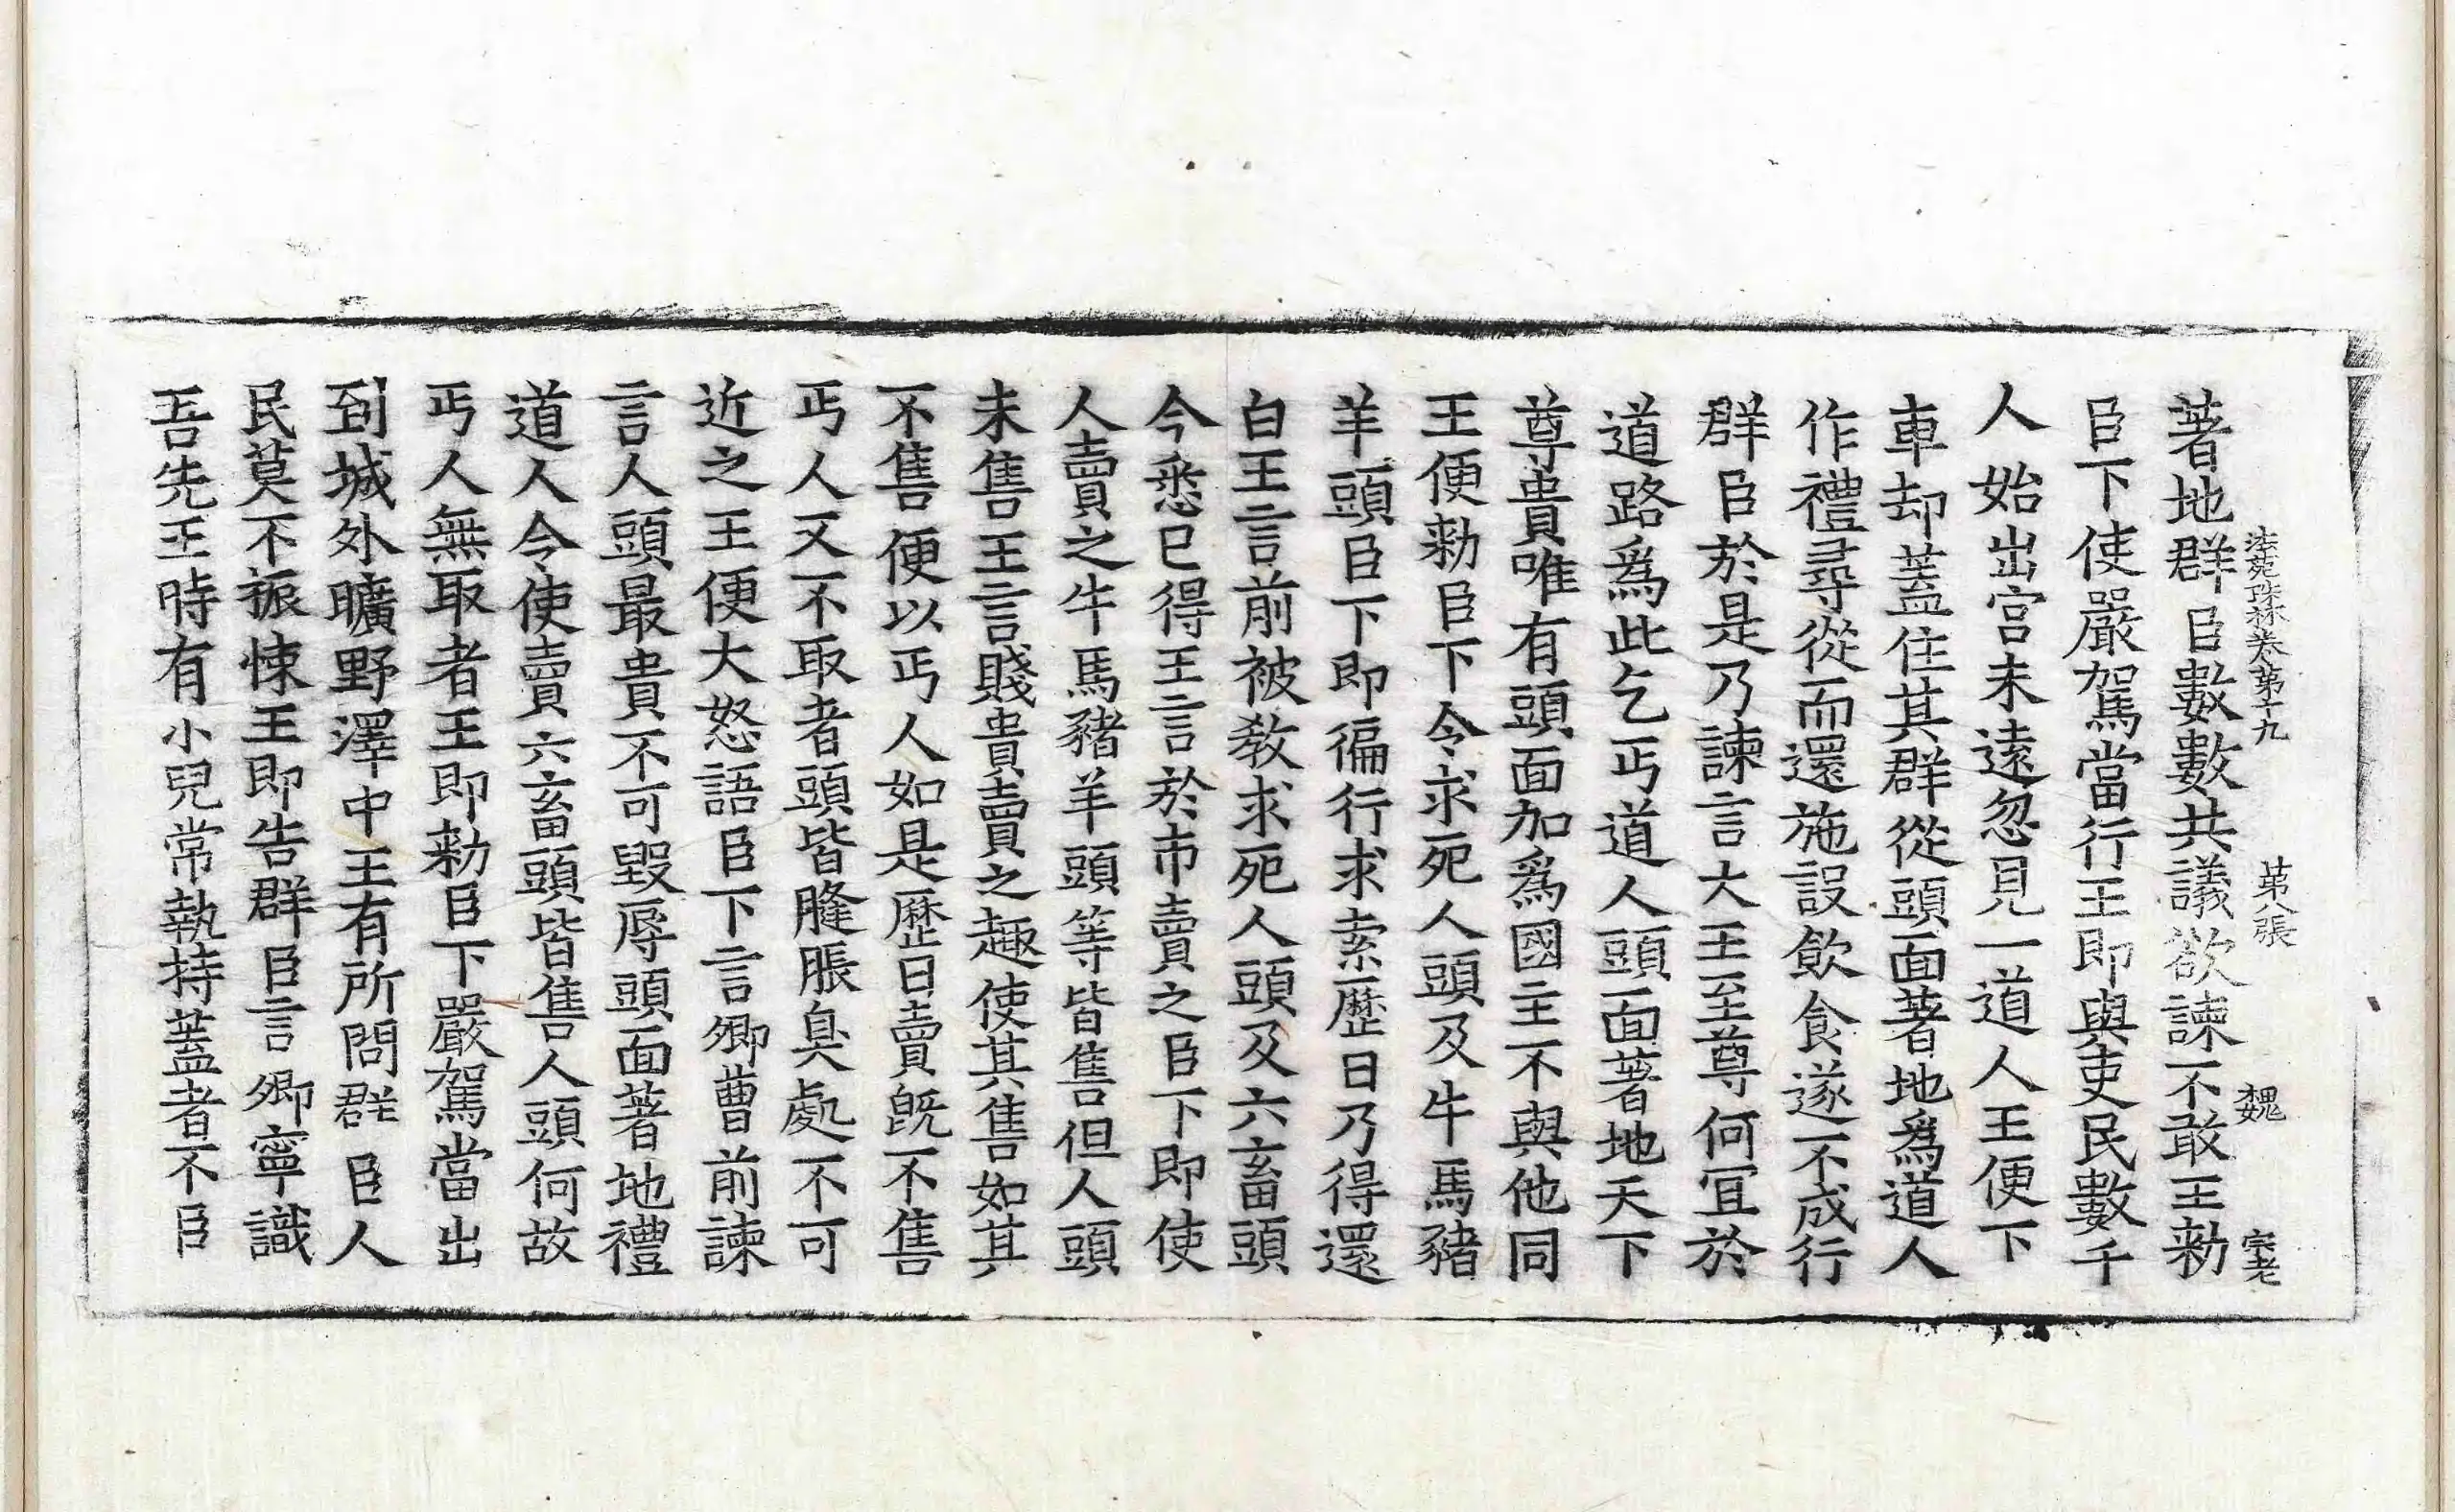 法苑珠林卷第十九 第八張 魏 宗老
著地群臣數數共議欲諫不敢王勑
臣下使嚴駕當行王即與吏民數千
人始出宮未遠忽見一道人王便下
車却蓋住其群從頭面著地為道人
作禮尋從而還施設飲食遂不成行
群臣於是乃諫言大王至尊何宜於
道路為此乞丐道人頭面著地天下
尊貴唯有頭面加為國主不與他同
王便勑臣下令求死人頭及牛馬豬
羊頭臣下即徧行求索歷日乃得還
白王言前被教求死人頭及六畜頭
今悉已得王言於市賣之臣下即使
人賣之牛馬豬羊頭等皆售但人頭
未售王言賤貴賣之趣使其售如其
不售便以丐人如是歷日賣既不售
丐人又不取者頭皆膖脹臭處不可
近之王便大怒語臣下言卿曹前諫
言人頭最貴不可毀辱頭面著地禮
道人今使賣六畜頭皆售人頭何故
丐人無取者王即勑臣下嚴駕當出
到城外曠野澤中王有所問群臣人
民莫不振悚王即告群臣言卿寧識
吾先王時有小兒常執持蓋者不臣